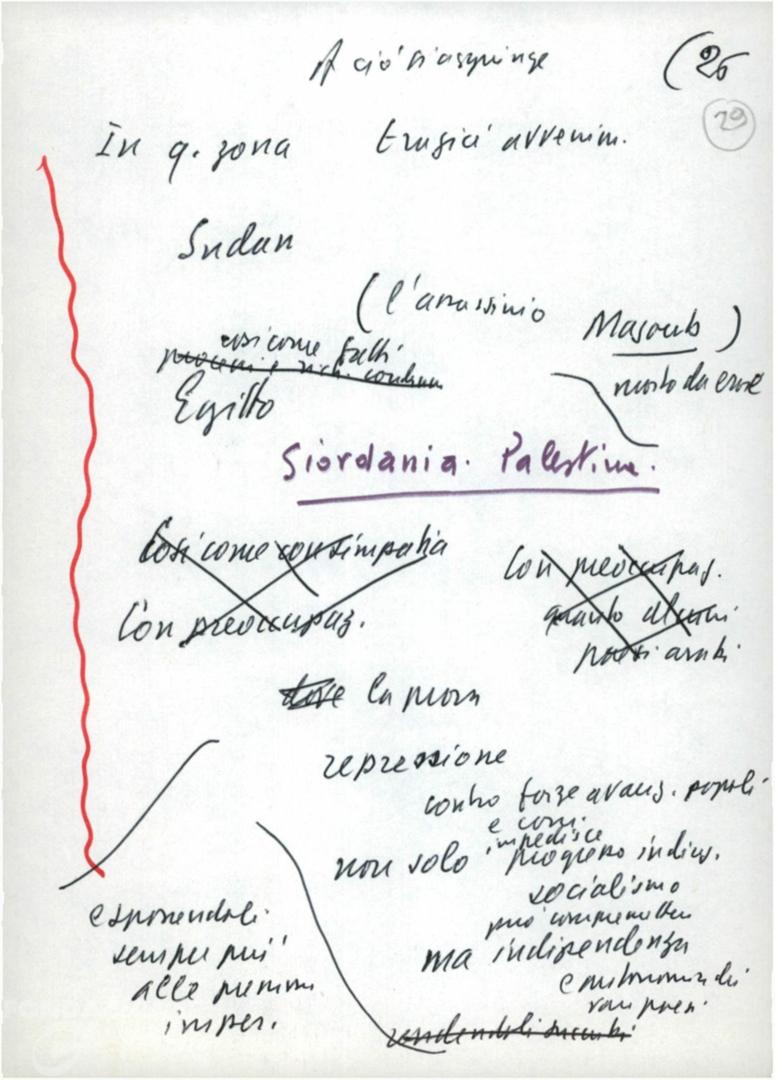 A ciò si aggiunge (26
29
In q. zona tragici avvenim.
Sudan
(l'assassinio Magoub)
morto da eroe
così come fatti
Egitto
Giordania. Palestina.
Così come con simpatia
Con preoccupaz.
Con preoccupaz.
quanto alcuni
paesi arabi
dove la
repressione
contro forze avanz. popoli
e com.
impedisce
non solo progresso
socialismo
può compromettere
ma indipendenza
e autonomia di
vari paesi
esponendoli
sempre più
alle pressioni
imper.
rendendoli succubi